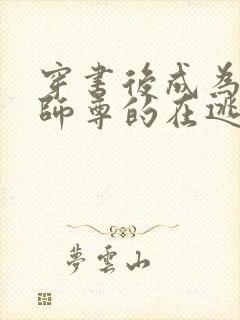 穿書後成為
師尊的在逃
夢雲山